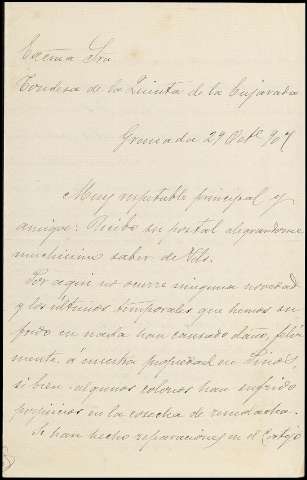 Excma Sra
Condesa de la Quinta de la Enjarada
Granada 29 Octe 907
Muy respetable principal y
amiga: Recibo su postal alegrandome
muchisimo saber de Vds.
Por aqui no ocurre ninguna novedad
y los últimos temporales que hemos su-
frido en nada han causado daño, feliz-
mente, á nuestra propiedad en
si bien algunos colonos han sufrido
perjuicios en la cosecha de remolacha.
Se han hecho reparaciones en el Cortijo